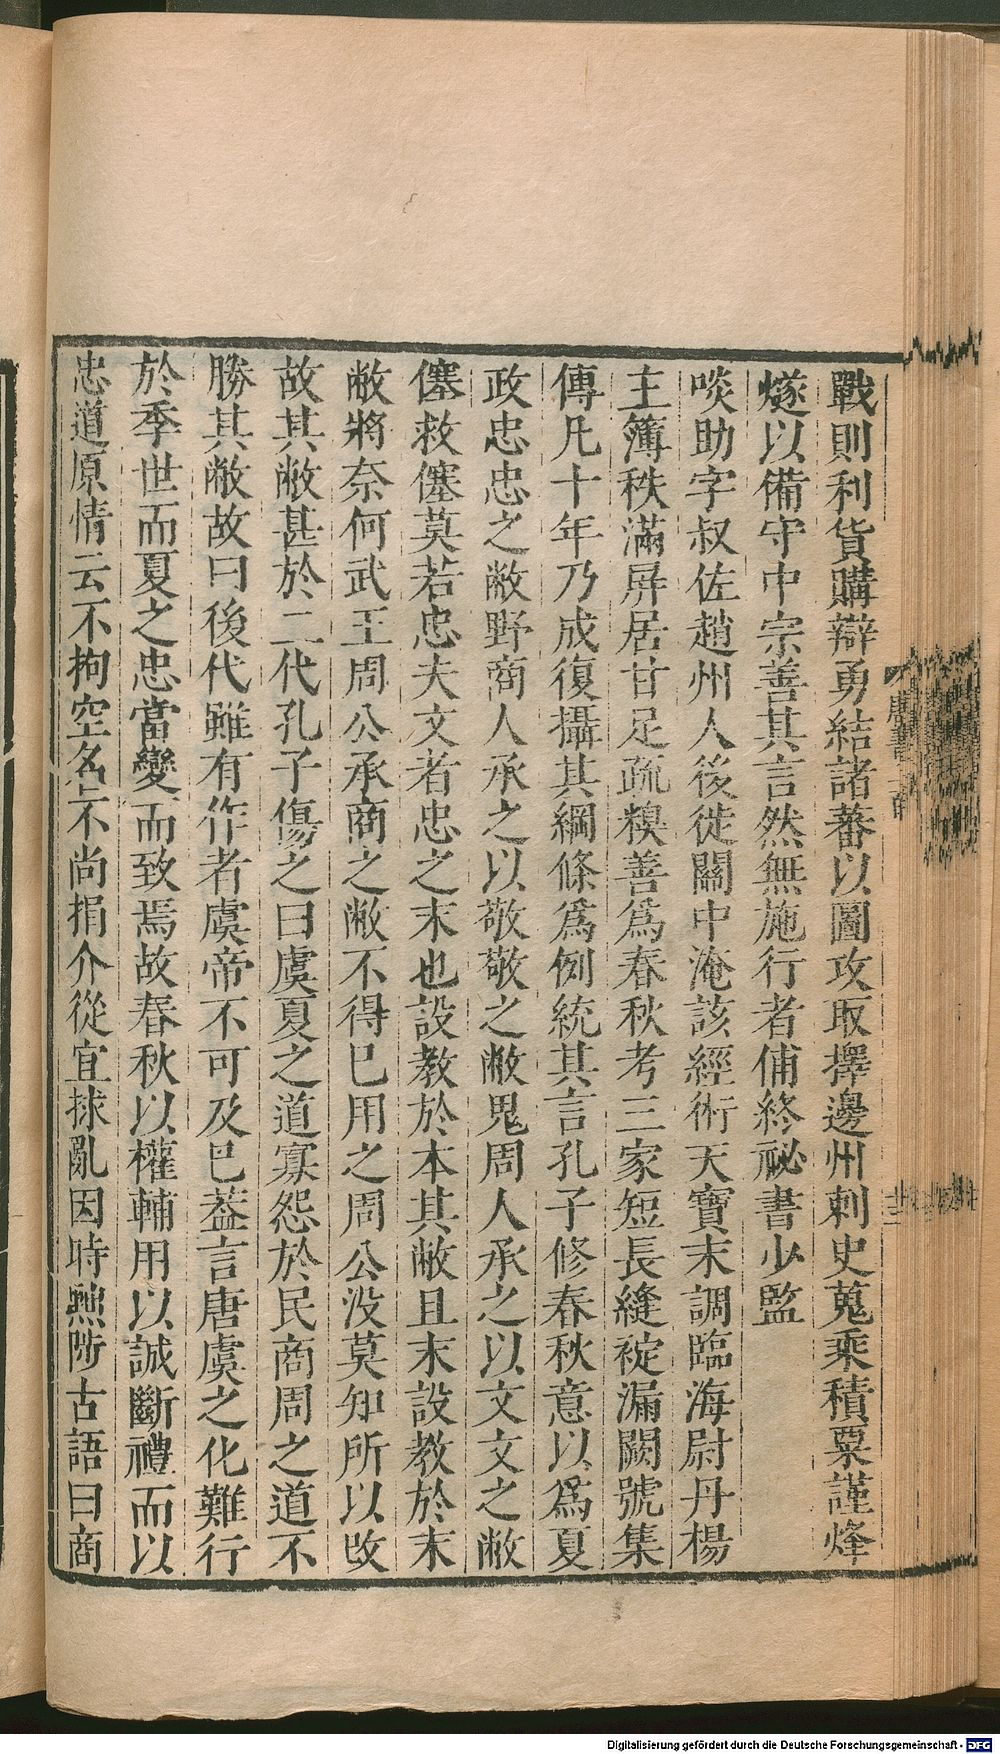 戰則利貨購辯勇結諸蕃以圖攻取擇邊州刺史蒐乘積粟謹烽
燧以備守中宗善其言然無施行者俌終祕書少監
啖助字叔佐趙州人後徙關中淹該經術天寶末調臨海尉丹楊
主簿秩滿屏居甘足疏糗善爲春秋考三家短長縫䘺漏闕號集
傳凡十年乃成復攝其綱條爲例統其言孔子修春秋意以爲夏
政忠忠之敝野商人承之以敬敬之敝鬼周人承之以文文之敝
僿救僿莫若忠夫文者忠之末也設教於本其敝且末設教於末
敝將奈何武王周公承商之敝不得已用之周公没莫知所以改
故其敝甚於二代孔子傷之曰虞夏之道寡怨於民商周之道不
勝其敝故曰後代雖有作者虞帝不可及已葢言唐虞之化難行
於季世而夏之忠當變而致焉故春秋以權輔用以誠斷禮而以
忠道原情云不拘空名不尚狷介從宜捄亂因時黜陟古語曰商
唐書
Digitalisierung gefördert durch die Deutsche Forschungsgemeinschaft - DFG